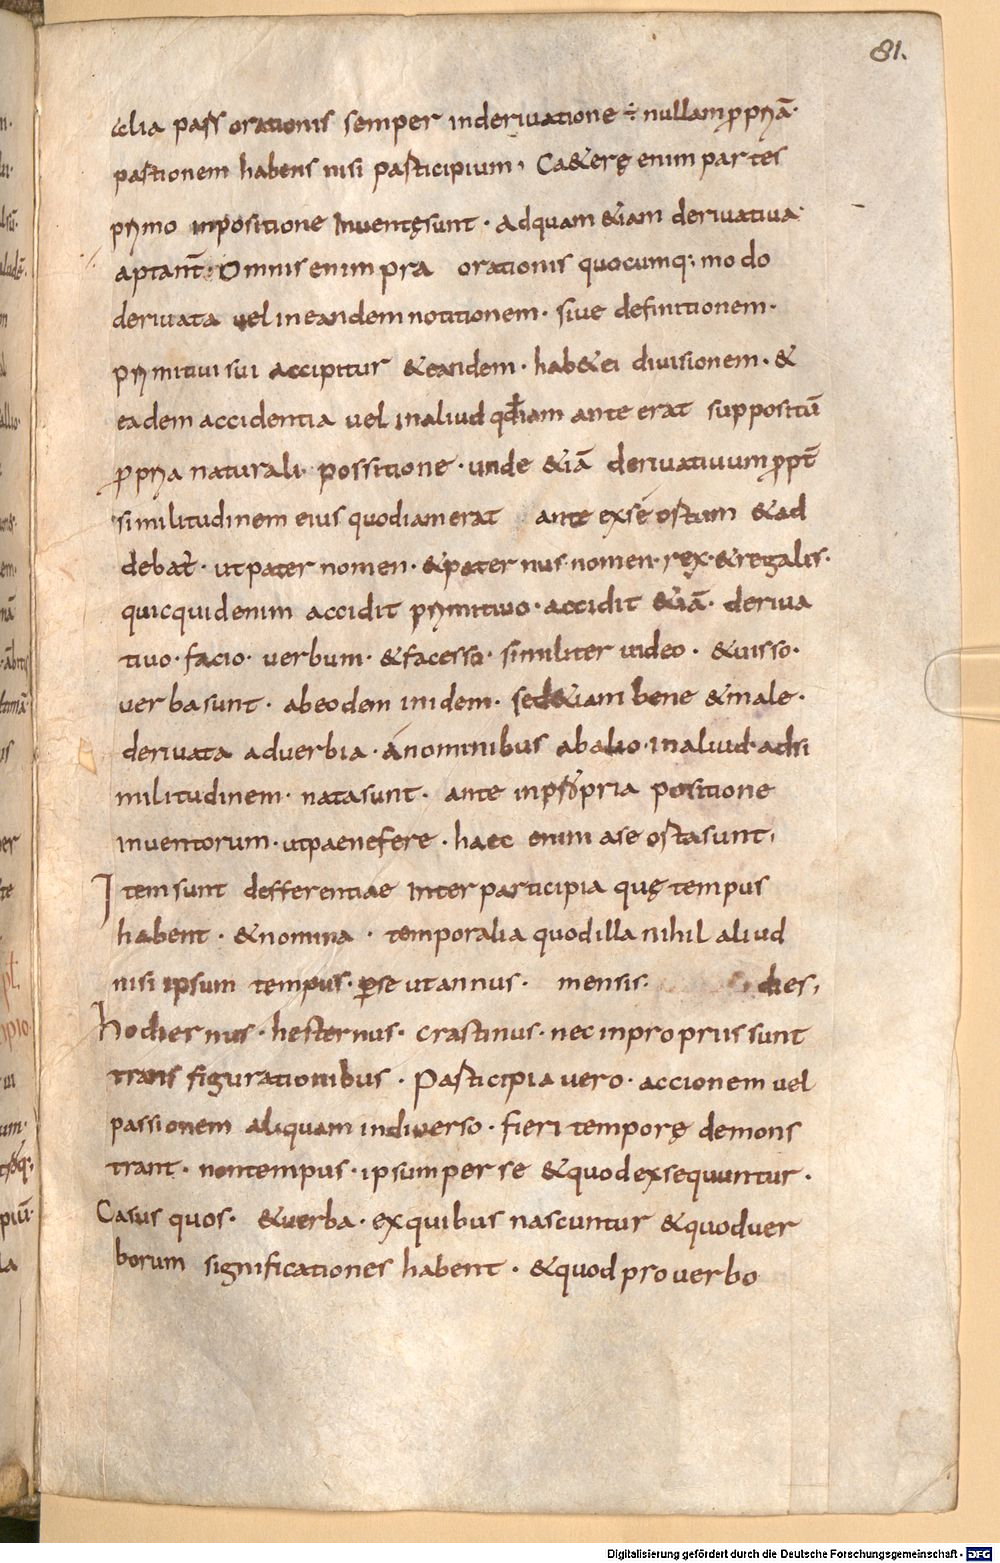 81.
alia pars orationis semper inderivatione ÷ nullam ppriā·
partionem habens nisi participium· Ca&erę enim partes
primo inpositione Inventę sunt· adquam &iam derivativa·
aptant̄· Omnis enim pra orationis quocumq; modo
derivata vel ineandem notitionem· sive definitionem·
primitivi sui accipitur &eandem· hab&ei divisionem· &
eadem accidentia vel inaliud qđiam ante erat suppositū
ppria naturali· possitione· unde &iā derivativum ppt̄
similitudinem eius quodiam erat ante exse ostum &ad
debat̄· ut pater nomen· &paternus nomen· rex· &regalis·
quicquid enim accidit primitivo· accidit &iā· deriva
tivo· facio· verbum· &facesso· similiter video· &visso·
verba sunt· abeodem inidem· sed &iam bene &male·
derivata adverbia· anominibus abalio· inaliud· adsi
militudinem· nata sunt· ante inpropria positione
inventorum· ut paene fere· haec enim a se osta sunt,
Item sunt defferentiae Inter participia quę tempus
habent· &nomina· temporalia quod illa nihil aliud
nisi ipsum tempus· p̱se ut annus· mensis· dies,
hodiernus· hesternus· crastinus· nec inpropriis sunt
trans figurationibus· Participia vero· accionem vel
passionem aliquam indiverso· fieri temporę demons
trant· non tempus· ipsum per se &quod exsequuntur·
Casus quos· &verba· ex quibus nascuntur &quod ver
borum significationes habent· &quod pro verbo
Digitalisierung gefördert durch die Deutsche Forschungsgemeinschaft - DFG